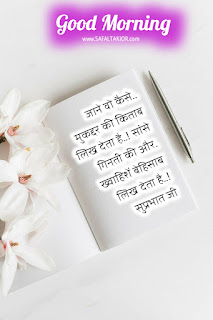 Good Morning
www.SAFALTAKIOR.COM
जाने वो कैसे..
मुकद्दर की किताब
लिख देता है..! सांसे
गिनती की और.
ख्वाहिशें बेहिसाब
लिख देता है..!
सुप्रभात जी